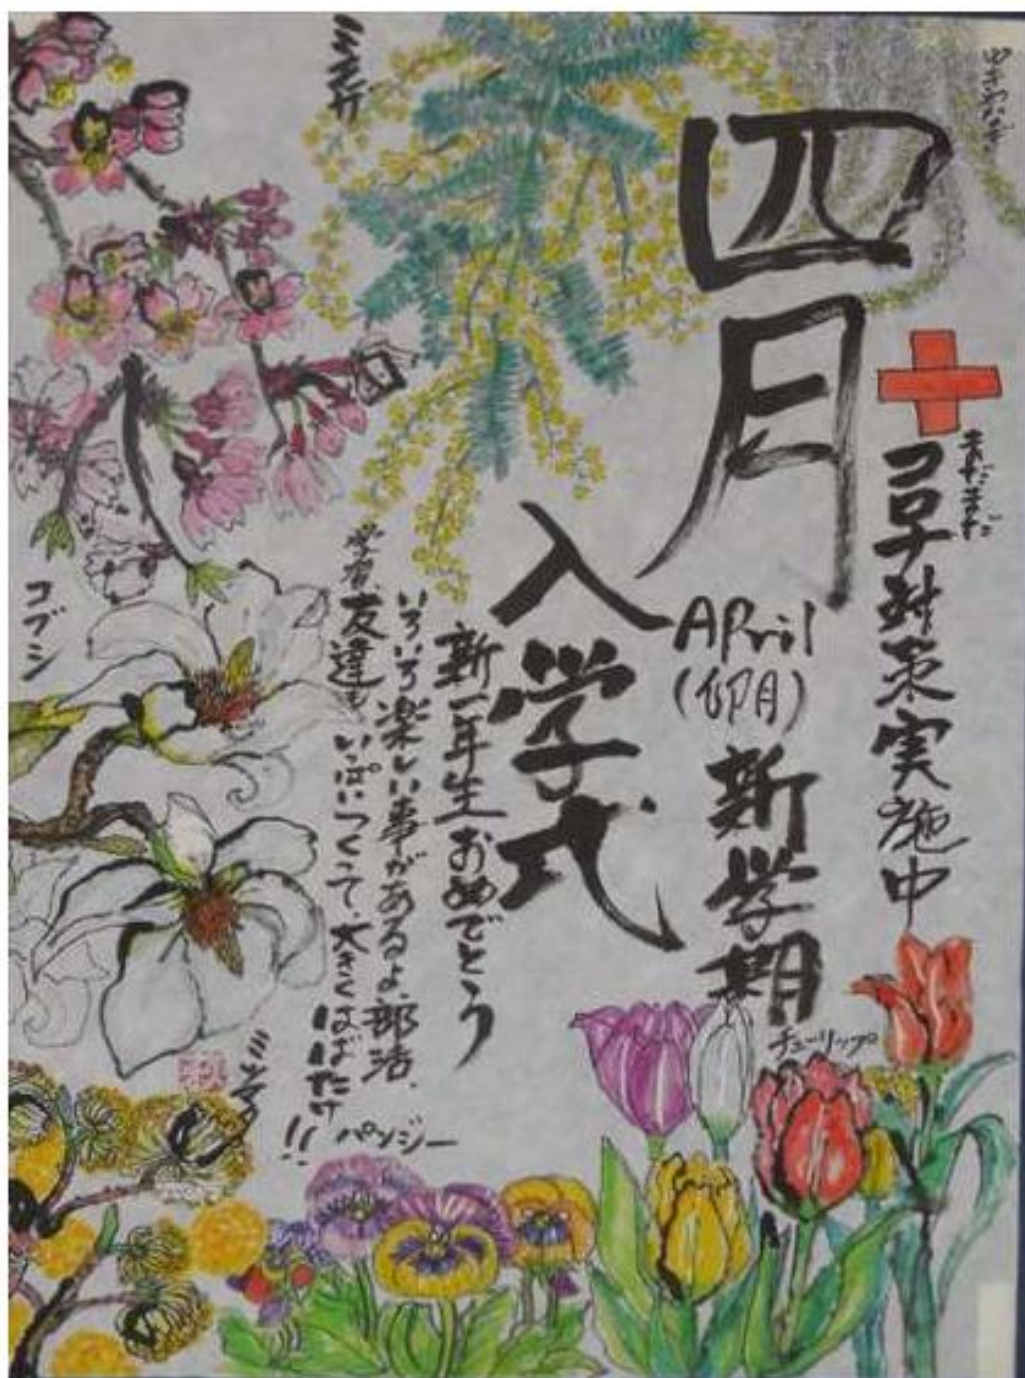 ゆきやなぎ
四月
まだまだ
コロナ対策実施中
April
(卯月)
新学期
入学式
新一年生おめでとう
いろいろ楽しい事があるよ、部活、
学習、友達も、いっぱいつくって、大きくはばたけ!!
ミモザ
コブシ
ミツマタ
パンジー
チューリップ